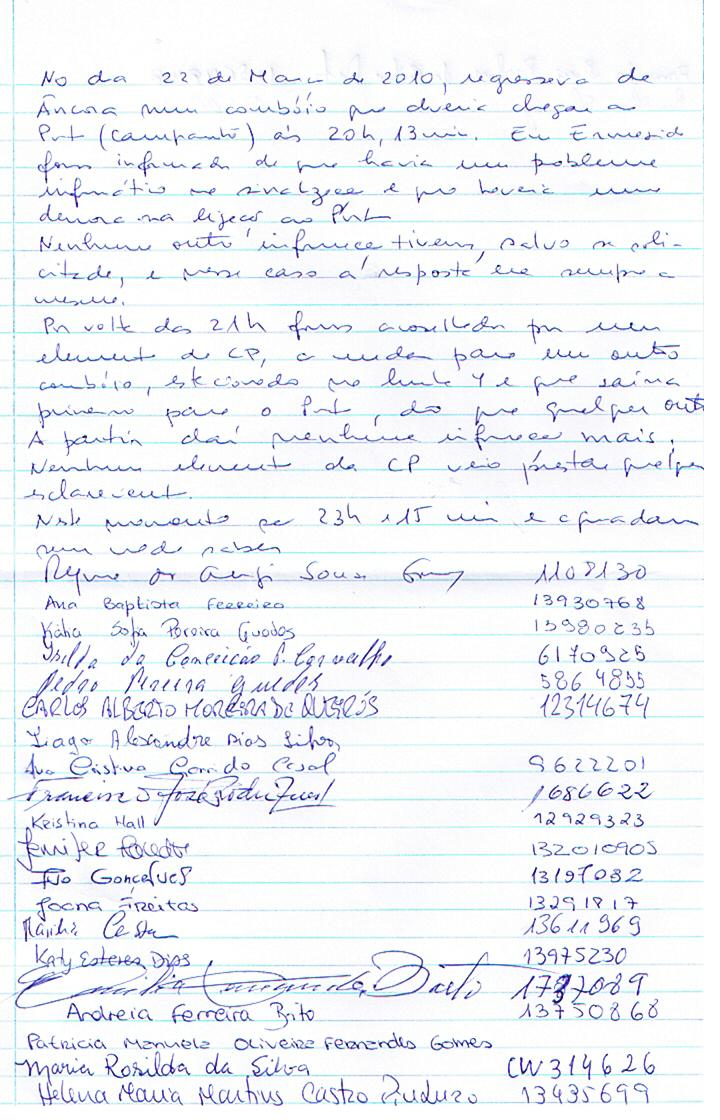 No dia 22 de Março de 2010, regressava de
Âncora num combóio que deveria chegar ao
Port (Campanhã) às 20h, 13 min. Em Ermesid
fomos informados de que havia um problema
informático na sinalização e que haveria uma
demora na ligação ao Port
Nenhuma outra informação tivemos, salvo se soli-
citada, e nesse caso a resposta era sempre a
mesma.
Por volta das 21h fomos aconselhados por um
element da CP, a mudar para um outro
combóio, estacionado na linha 4 e que sairia
primeiro para o Port, do que qualquer outr
A partir daí nenhuma informação mais.
Nenhum element da CP veio prestar qualquer
esclareciment.
Neste momento são 23h e 15 min e aguardam
sem nada saber
Sousa 1108130
Ana Baptista Ferreira 13930768
Kátia Sofia Pereira Guedes 13980235
da Conceição P. Carvalho 6170925
Pedro Moreira Guedes 5864855
CARLOS ALBERTO MOREIRA DE QUEIRÓS 12314674
Tiago Alexandre Dias Silva
Ana Cristina Garrido Casal 9622201
Francisco José Rodrigues 1686622
Kristina Hall 12929323
Jennifer 132010905
Ivo Gonçalves 13197082
Joana Freitas 13291817
Marília Costa 13611969
Katy Esteves Dias 13975230
1737089
Andreia Ferreira Brito 13750868
Patricia Manuela Oliveira Fernandes Gomes
Maria Rosilda da Silva CW314626
Helena Maria Martins Castro 13435699